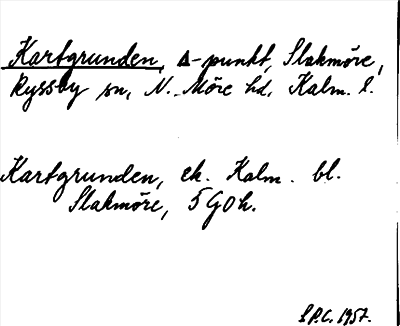 Kartgrunden, Δ-punkt, Slakmöre,
Ryssby sn, N. Möre hd, Kalm. l.
Kartgrunden, ek. Kalm. bl.
Slakmöre, 5G0h.
S.P.C. 1957.